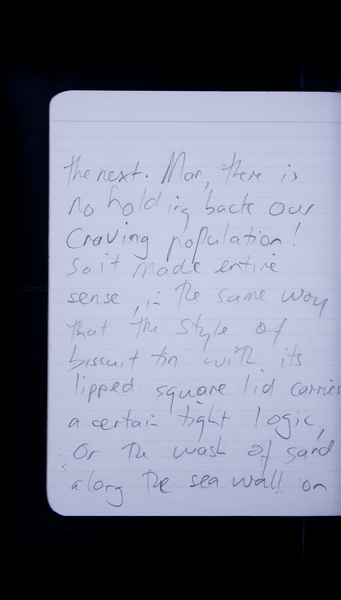 the next. Man, there is
no holding back our
Craving population!
So it made entire
sense, in the same way
that the style of
biscuit tin with its
lipped square lid carries
a certain tight logic,
Or the wash of sand
along the sea wall on